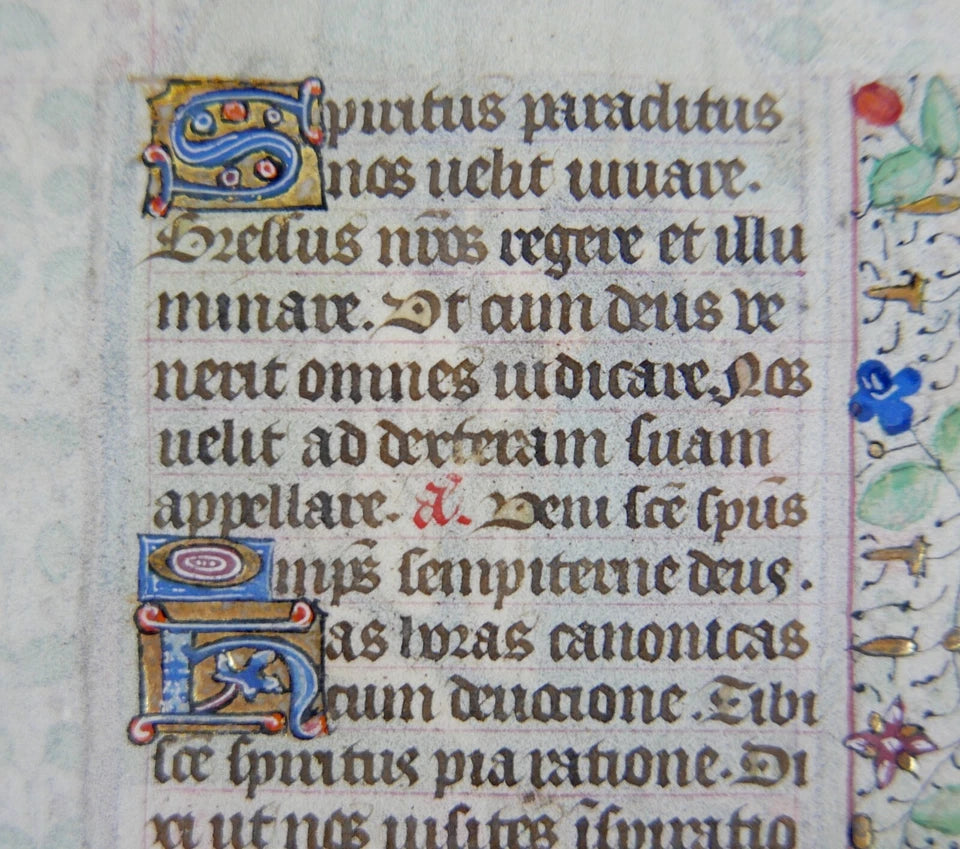 Spiritus paraclitus
nos uelit iuuare.
Gressus nr̄os regere et illu
minare. Vt cum deus ve
nerit omnes iudicare. Nos
uelit ad dexteram suam
appellare. a. Veni sc̄e sp̄us
Omp̄s sempiterne deus.
Has horas canonicas
cum deuocione. Tibi
sc̄e spiritus pia ratione. Di
xi ut nos uisites ispiratio